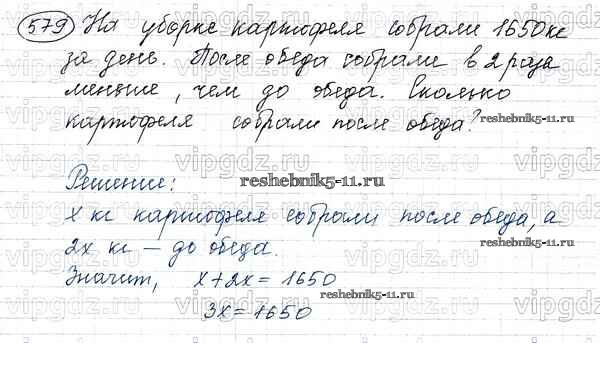 579 На уборке картофеля собрали 1650 кг
за день. После обеда собрали в 2 раза
меньше, чем до обеда. Сколько
картофеля собрали после обеда?
reshebnik5-11.ru
Решение:
reshebnik5-11.ru
x кг картофеля собрали после обеда, а
2x кг – до обеда.
reshebnik5-11.ru
Значит, x+2x=1650
reshebnik5-11.ru
3x=1650
vipgdz.ru vipgdz.ru vipgdz.ru